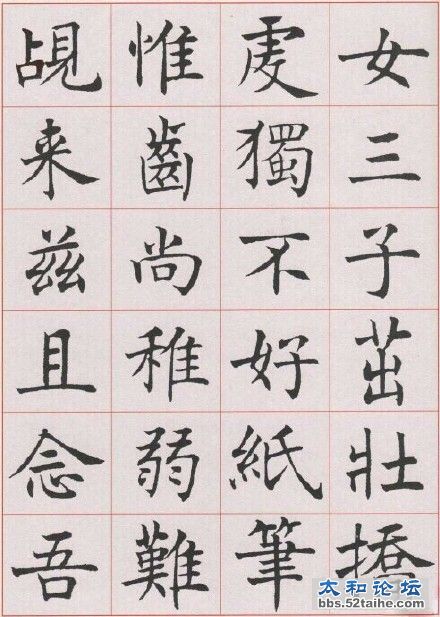 女三子茁壯撟
虔獨不好紙筆
惟齒尚稚弱難
覘来茲且念吾
太和论坛
bbs.52taihe.com